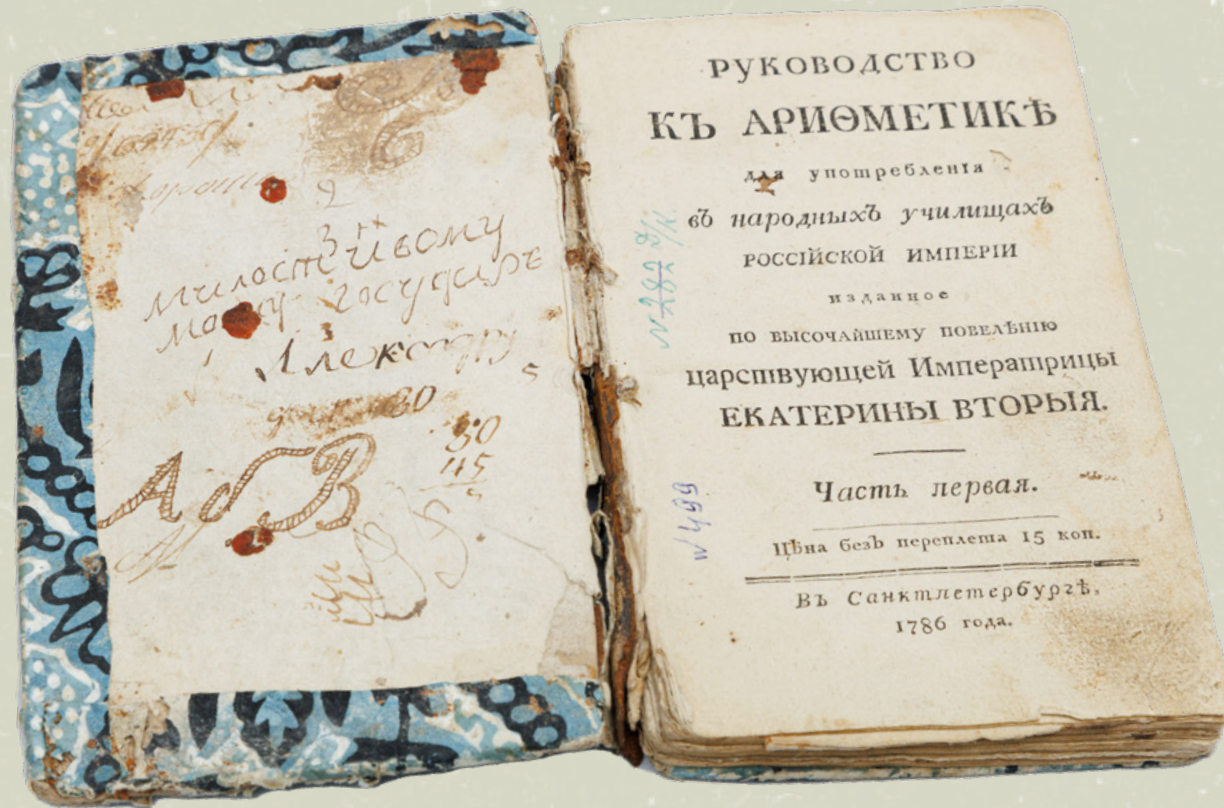 2
3 н
милостивому
моему государь
3
Александру
5
80
50
45
А б В
РУКОВОДСТВО
КЪ АРИѲМЕТИКѢ
для употребленїя
въ народныхъ училищахъ
РОССІЙСКОЙ ИМПЕРІИ
изданное
ПО ВЫСОЧАЙШЕМУ ПОВЕЛѢНІЮ
царствующей Императрицы
ЕКАТЕРИНЫ ВТОРЫЯ.
Часть первая.
Цѣна безъ переплета 15 коп.
Въ Санктпетербургѣ,
1786 года.
N282
N499